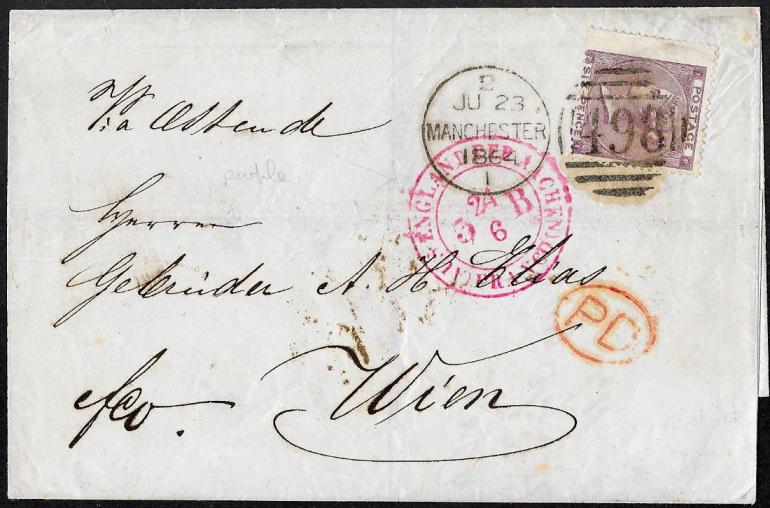 Via Ostende
2
JU 23
MANCHESTER
1864
1
498
POSTAGE
SIX PENCE
purple
AUS ENGLAND PER AACHEN
FRANCO
2A
B
5 6
Herren
Gebrüder A. H. Elias
PD
fco. Wien